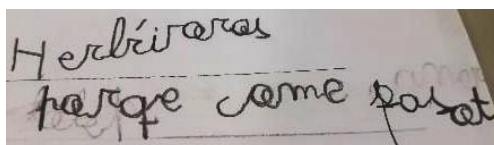 Herbívoros
porqe come pasot